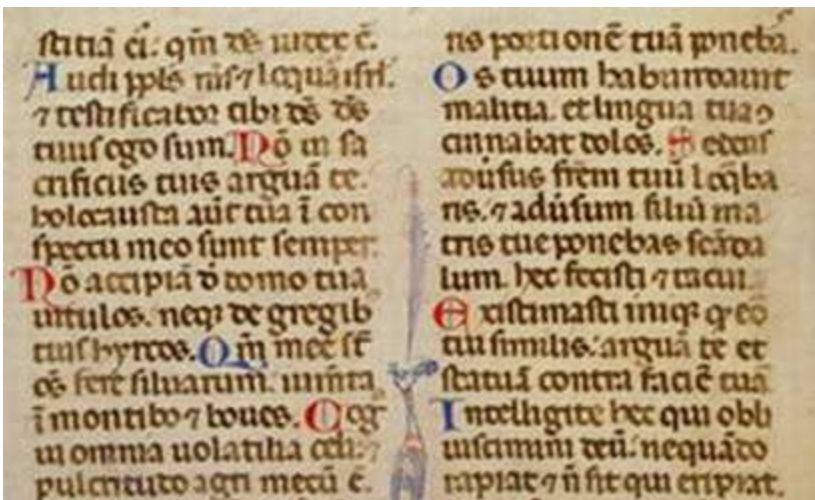 stitiã ei: qm̃ ds̃ iudex ẽ.
Audi ppls ms̃ ⁊ loquar isrl̃.
⁊ testificabor tibi ds̃ ds̃
tuus ego sum. Nõ in sa
crificiis tuis arguã te.
holocausta aũt tua ĩ con
spectu meo sunt semper.
Nõ accipiã d̃ domo tua
uitulos. neqꝫ de gregib
tuis hyrcos. Qm̃ mee st̃
oẽs fere siluarum. iumẽta
ĩ montibꝫ ⁊ boues. Cog
ui omnia uolatilia celi: ⁊
pulcritudo agri mecũ ẽ.
ris portionẽ tuã ponebã.
Os tuum habundauit
malitia. et lingua tua ↄ
cinnabat dolos. Sedens
adũsus frẽm tuũ loq̃ba
ris. ⁊ adũsum filiũ ma
tris tue ponebas scãda
lum. hec fecisti ⁊ tacui.
Existimasti iniqꝫ qꝫ eõ
tui similis: arguã te et
statuã contra faciẽ tuã
Intelligite hec qui obli
uiscimini deũ: nequãdo
rapiat ⁊ ñ sit qui eripiat.